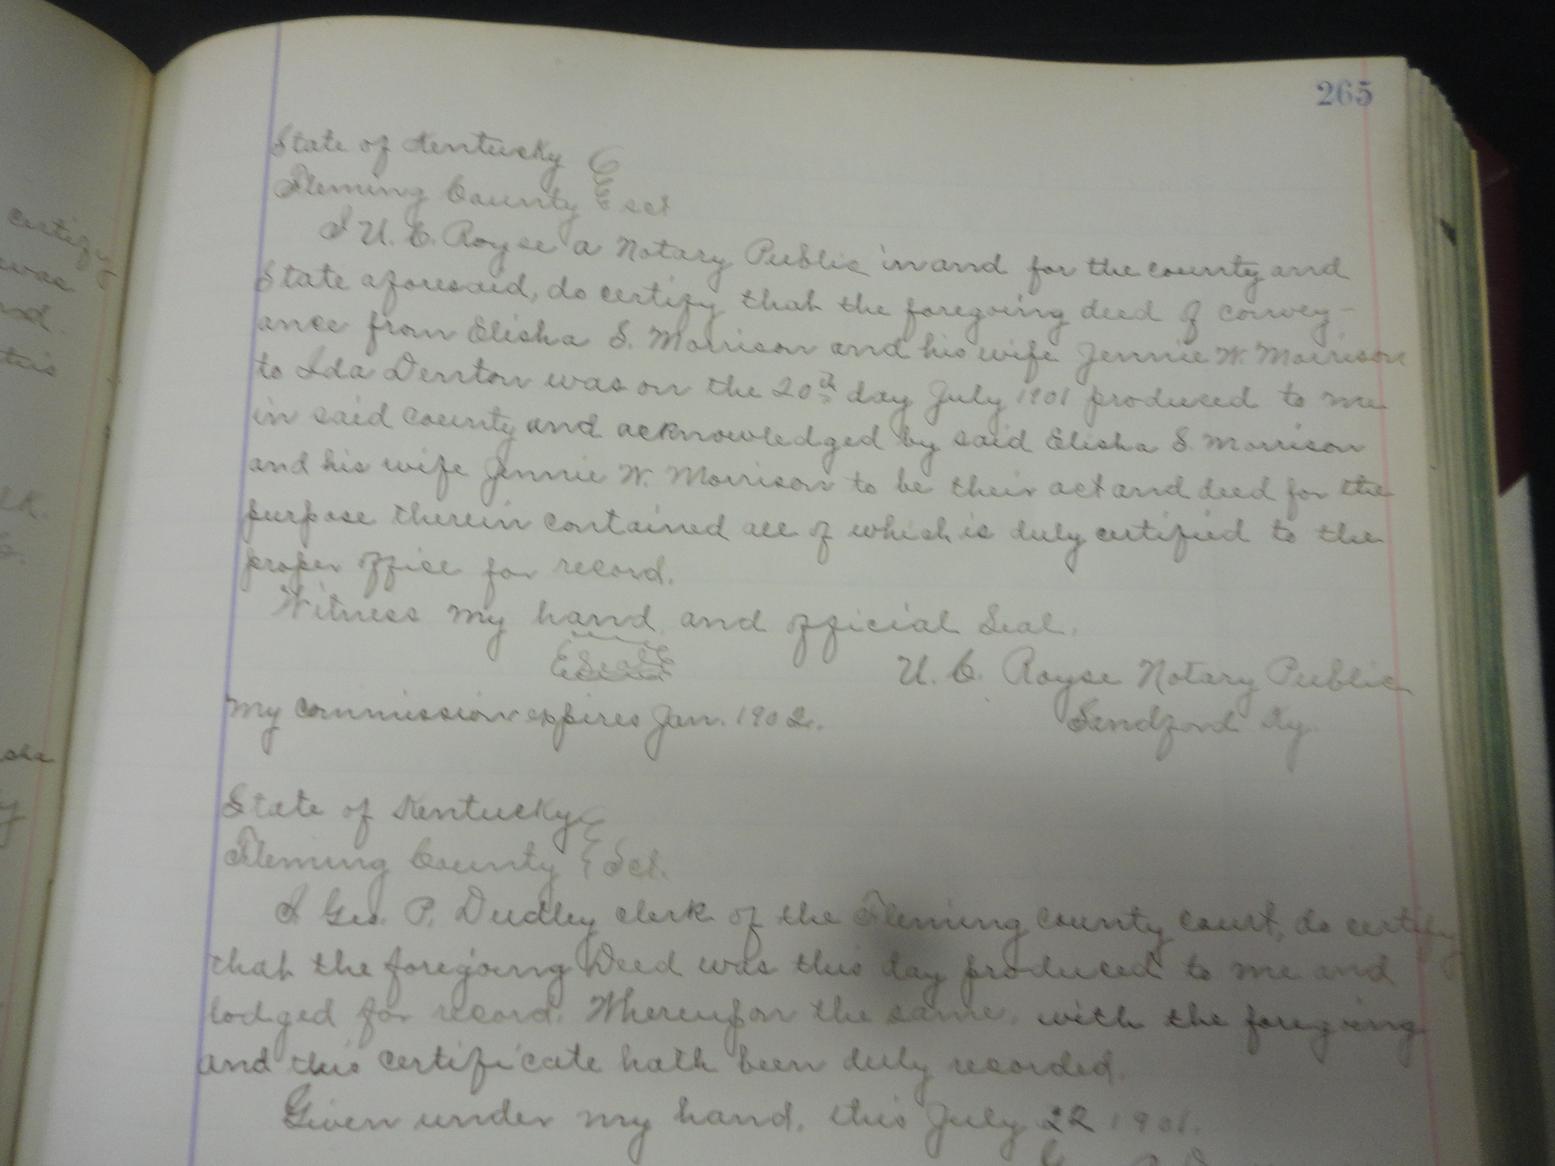 265
certify
was
State of Kentucky
Fleming County Sct
I U. C. Royse a Notary Public in and for the county and
State aforesaid, do certify that the foregoing deed of convey-
ance from Elisha S. Morrison and his wife Jennie W. Morrison
to Ida Denton was on the 20th day July 1901 produced to me
in said county and acknowledged by said Elisha S. Morrison
and his wife Jennie W. Morrison to be their act and deed for the
purpose therein contained all of which is duly certified to the
proper office for record.
Witness my hand, and official Seal.
Seal
U. C. Royse Notary Public
My commission expires Jan. 1902.
Sandford Ky.
State of Kentucky
Fleming County Sct.
I Geo. P. Dudley clerk of the Fleming county court, do certify
that the foregoing Deed was this day produced to me and
lodged for record. Whereupon the same, with the foregoing
and this certificate hath been duly recorded.
Given under my hand, this July 22 1901.